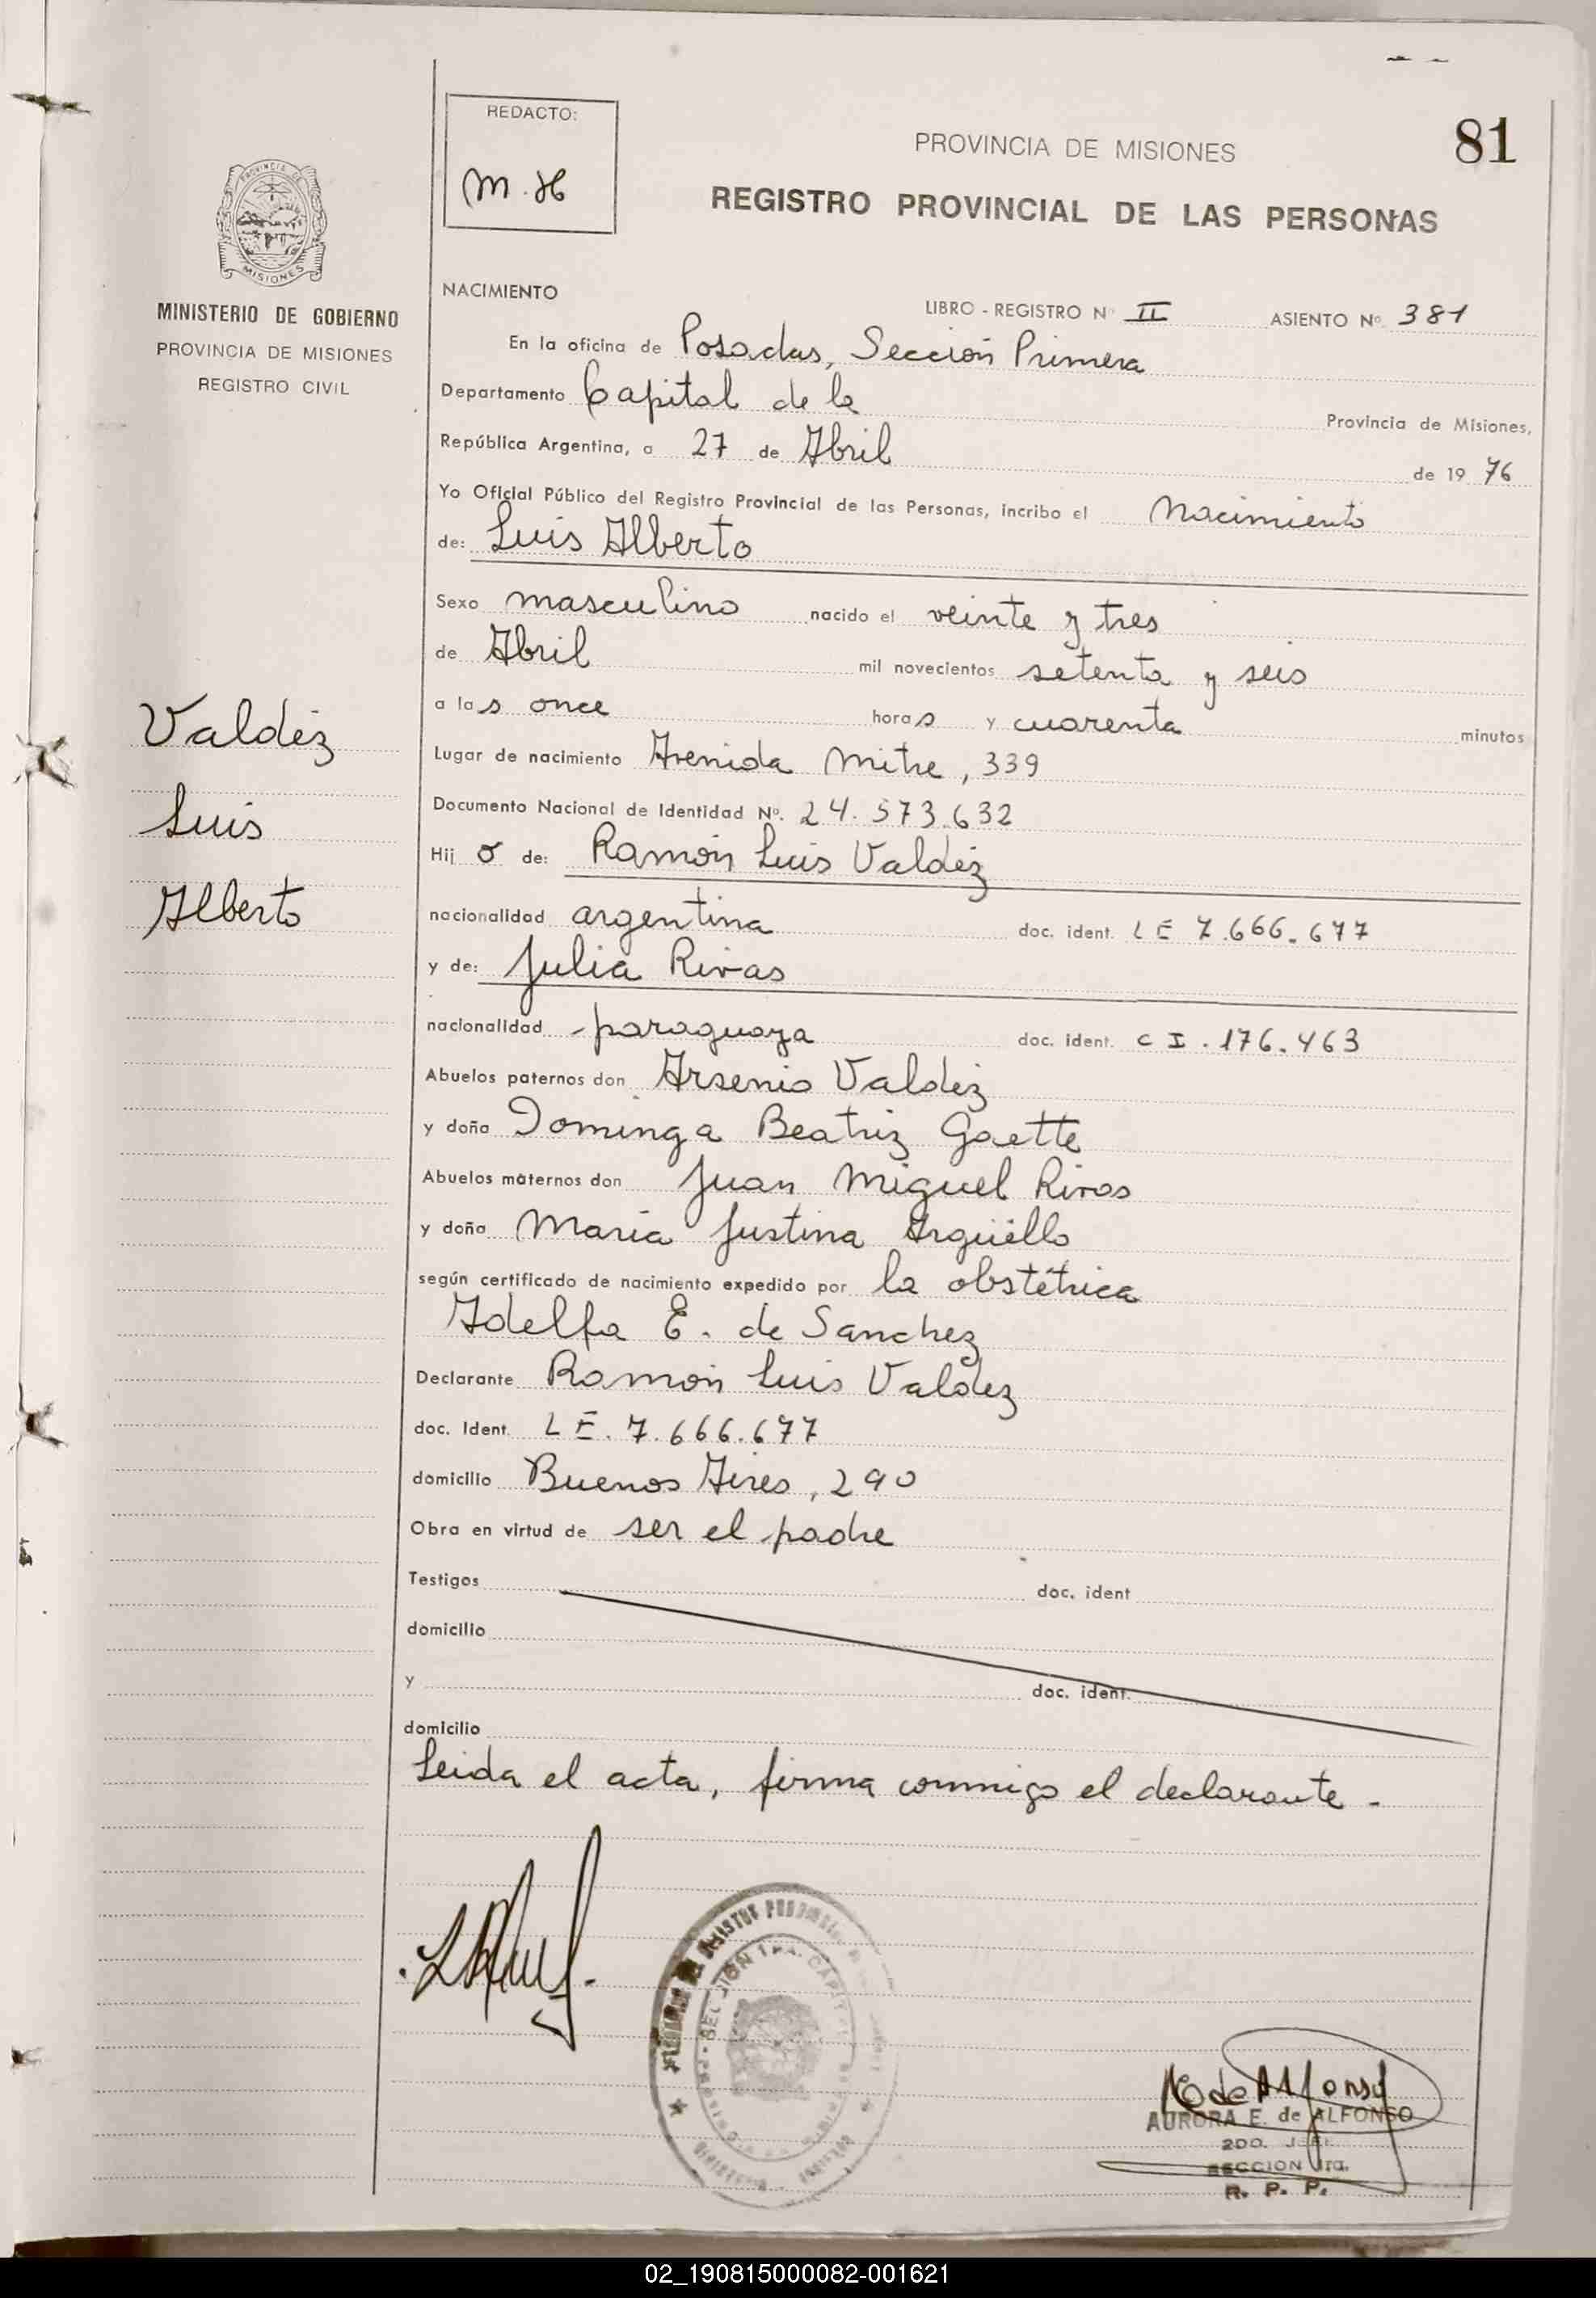 81
REDACTO:
M. H
PROVINCIA DE MISIONES
REGISTRO PROVINCIAL DE LAS PERSONAS
PROVINCIA DE
MISIONES
MINISTERIO DE GOBIERNO
PROVINCIA DE MISIONES
REGISTRO CIVIL
Valdéz
Luis
Alberto
NACIMIENTO
LIBRO - REGISTRO Nº II ASIENTO Nº 381
En la oficina de Posadas, Sección Primera
Departamento Capital de la Provincia de Misiones,
República Argentina, a 27 de Abril de 19 76
Yo Oficial Público del Registro Provincial de las Personas, incribo el Nacimiento
de: Luis Alberto
Sexo masculino nacido el veinte y tres
de Abril mil novecientos setenta y seis
a las once horas y cuarenta minutos
Lugar de nacimiento Avenida Mitre, 339
Documento Nacional de Identidad Nº. 24.573.632
Hijo de: Ramón Luis Valdéz
nacionalidad argentina doc. ident. LE 7.666.677
y de: Julia Rivas
nacionalidad paraguaya doc. ident. C I. 176.463
Abuelos paternos don Arsenio Valdéz
y doña Dominga Beatriz Goette
Abuelos maternos don Juan Miguel Rivas
y doña María Justina Argüello
según certificado de nacimiento expedido por la obstétrica
Adelfa E. de Sanchez
Declarante Ramón Luis Valdez
doc. Ident. L E. 7.666.677
domicilio Buenos Aires, 290
Obra en virtud de ser el padre
Testigos doc. ident
domicilio
y doc. ident.
domicilio
Leida el acta, firma conmigo el declarante.-
AURORA E. de ALFONSO
2DO. JEFE
SECCION 1ra.
R. P. P.
02_190815000082-001621